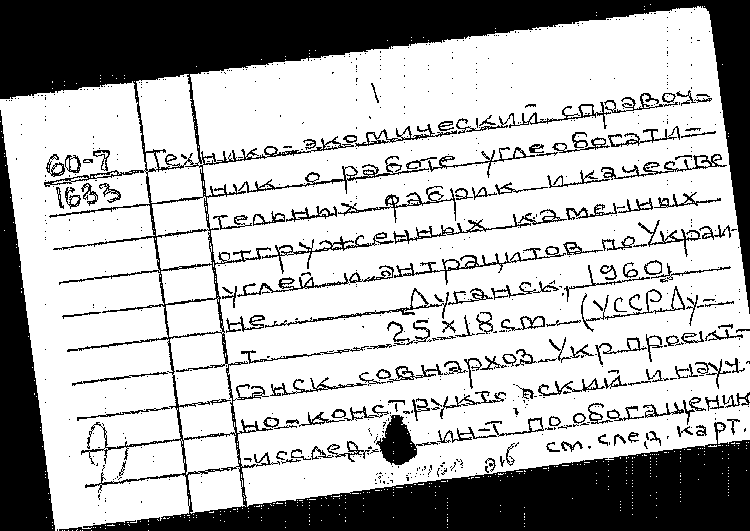 60-7 Технико-экомический справоч-
1633 ник о работе углеобогати-
тельных фабрик и качестве
отгруженных каменных
углей и антрацитов по Украи
не..... Луганск, 1960,
т. 25×18 cm. (УССР. Лу-
ганск. совнархоз. Укр. проект-
но-конструкт. ский и науч.
-исслед. ин-т по обогащению
см. след. карт.